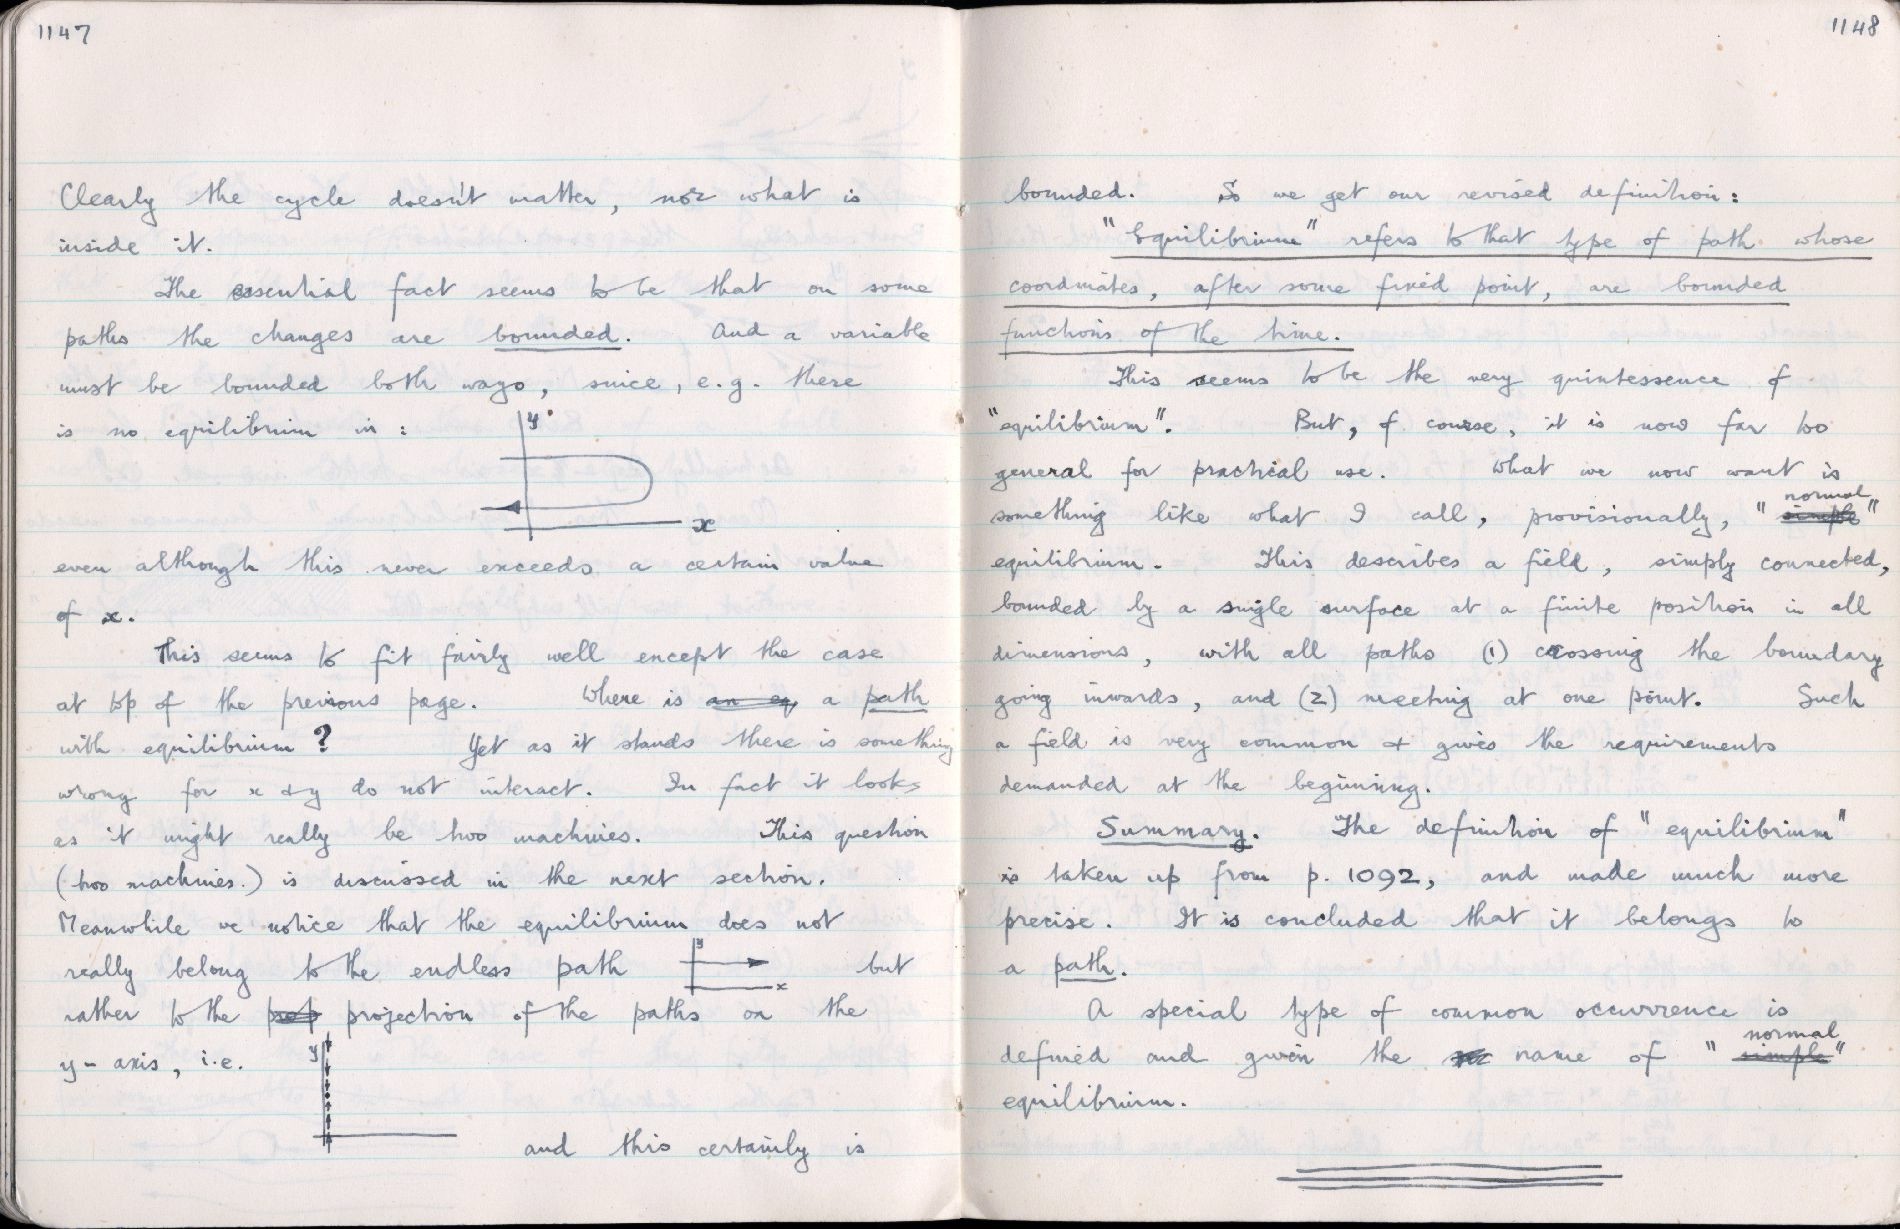 1147
Clearly the cycle doesn't matter, nor what is
inside it.
The essential fact seems to be that on some
paths the changes are bounded. And a variable
must be bounded both ways, since, e.g. there
is no equilibrium in :
y
x
even although this never exceeds a certain value
of x.
This seems to fit fairly well except the case
at top of the previous page. Where is an eq a path
with equilibrium? Yet as it stands there is something
wrong for x & y do not interact. In fact it looks
as it might really be two machines. This question
(two machines.) is discussed in the next section.
Meanwhile we notice that the equilibrium does not
really belong to the endless path y x but
rather to the prop projection of the paths on the
y-axis, i.e. y
and this certainly is
1148
bounded. So we get our revised definition:
"Equilibrium" refers to that type of path whose
coordinates, after some fixed point, are bounded
functions of the time.
This seems to be the very quintessence of
"equilibrium". But, of course, it is now far too
general for practical use. What we now want is
something like what I call, provisionally, "simple normal"
equilibrium. This describes a field, simply connected,
bounded by a single surface at a finite position in all
dimensions, with all paths (1) crossing the boundary
going inwards, and (2) meeting at one point. Such
a field is very common & gives the requirements
demanded at the beginning.
Summary. The definition of "equilibrium"
is taken up from p. 1092, and made much more
precise. It is concluded that it belongs to
a path.
A special type of common occurrence is
defined and given the name of "simple normal"
equilibrium.